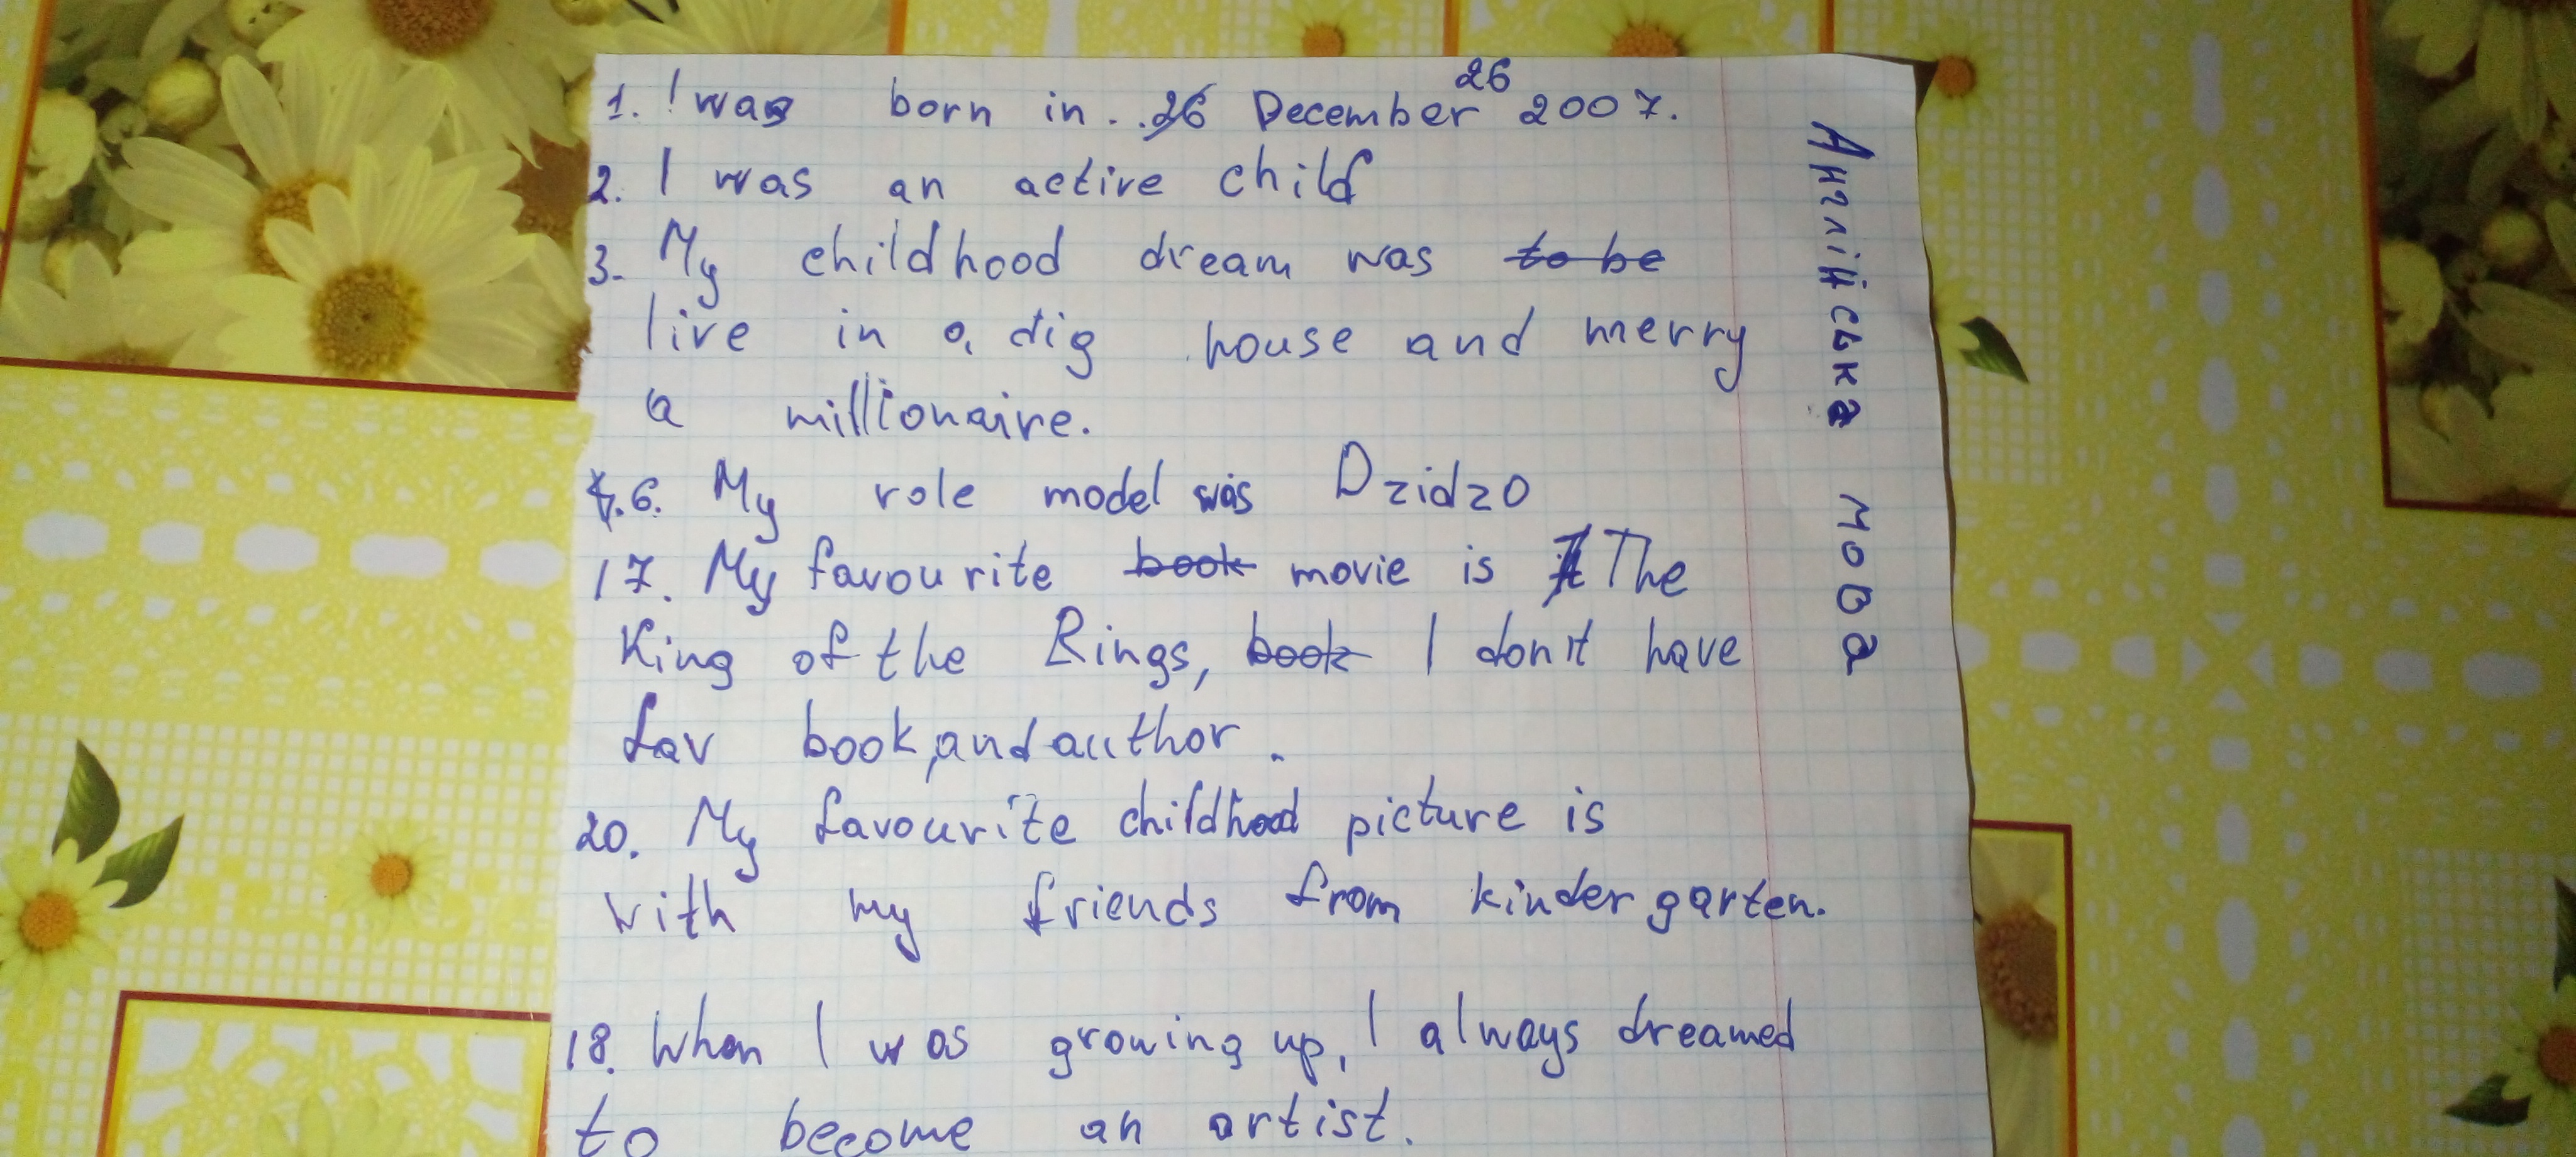 1. I was born in .. 26 December 26 2007.
2. I was an active child
3. My childhood dream was to be
live in a dig house and merry
a millionaire.
6. My role model was Dzidzo
17. My favourite book movie is The
King of the Rings, book I don't have
fav book, and author.
20. My favourite childhood picture is
with my friends from kindergarten.
18. When I was growing up, I always dreamed
to become an artist.
Англійська мова